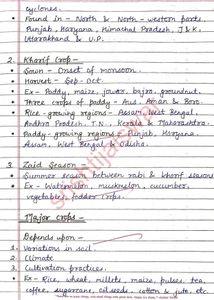 cyclones.
• Found in - North & North-western parts,
Punjab, Haryana, Himachal Pradesh, J & K,
Uttarakhand & U.P.
2. Kharif Crop -
• Sown - Onset of monsoon.
• Harvest - Sep-Oct.
• Ex - Paddy, maize, jowar, bajra, groundnut.
• Three crops of paddy - Aus, Aman & Boro.
• Rice-growing regions - Assam, West Bengal,
Andhra Pradesh, T.N., Kerala & Maharashtra.
• Paddy-growing regions - Punjab, Haryana,
Assam, West Bengal & Odisha.
3. Zaid Season -
• Summer season between rabi & kharif seasons
• Ex - Watermelon, muskmelon, cucumber,
vegetables, fodder crops.
Major Crops -
Depends upon -
1. Variations in soil.
2. Climate
3. Cultivation practices.
• Ex - Rice, wheat, millets, maize, pulses, tea,
coffee, sugarcane, oil seeds, cotton & jute, etc.